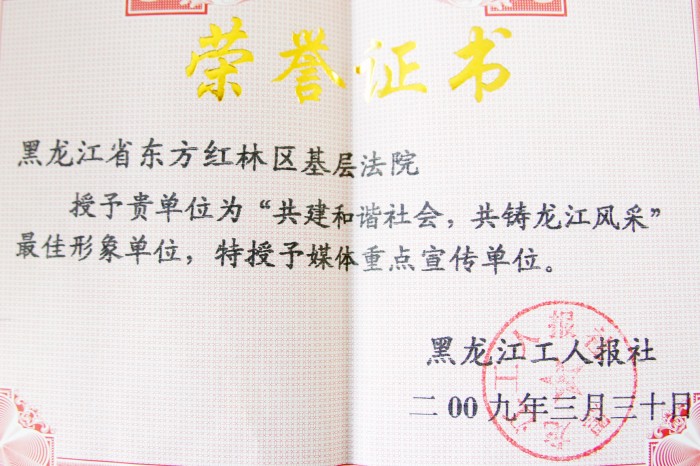 荣誉证书
黑龙江省东方红林区基层法院
授予贵单位为“共建和谐社会，共铸龙江风采”
最佳形象单位，特授予媒体重点宣传单位。
黑龙江工人报社
二00九年三月三十日